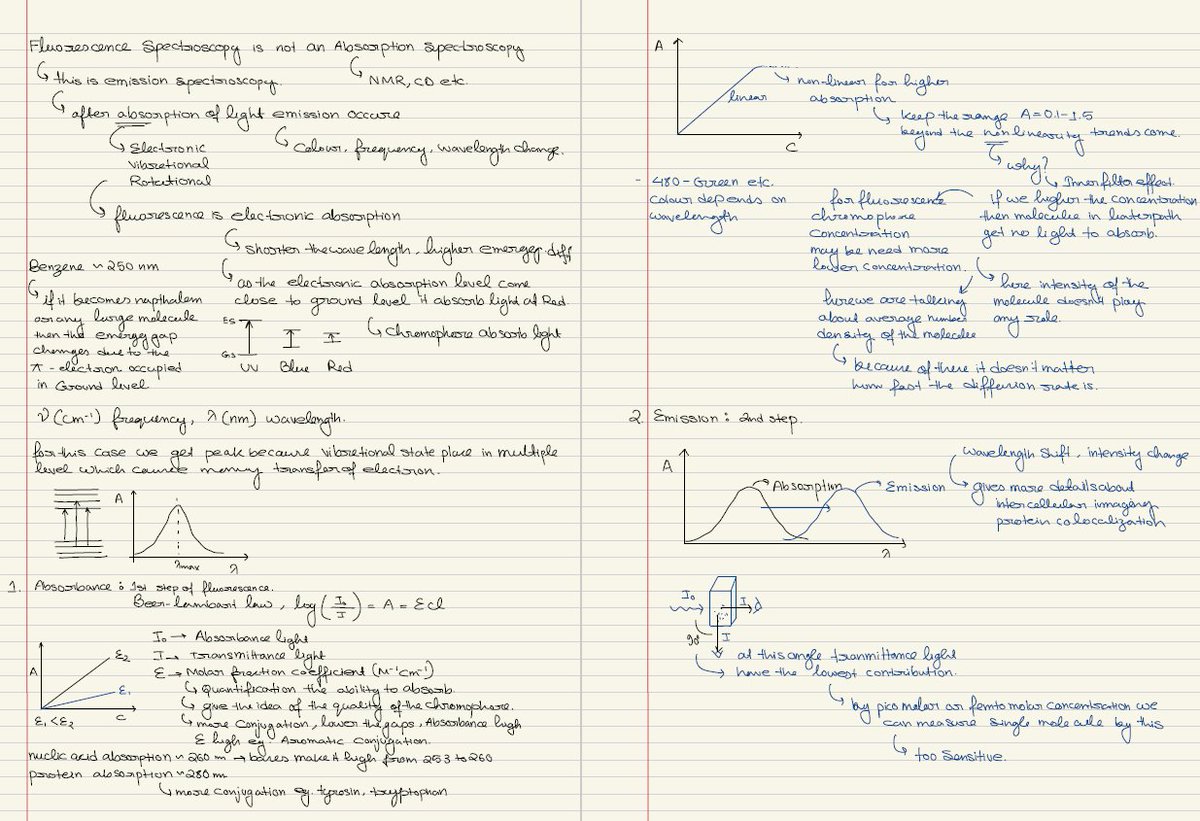 Fluorescence Spectroscopy is not an Absorption Spectroscopy
this is emission spectroscopy.
NMR, CD etc.
after absorption of light emission occure
Electronic
Vibretional
Rotational
Colour, frequency, wavelength change.
fluorescence is electronic absorption
shorter the wave length, higher energy diff
Benzene ~ 250 nm
if it becomes napthalem
or any large molecule
then the energy gap
changes due to the
π - electron occupied
in Ground level
as the electronic absorption level come
close to ground level it absorb light at Red.
ES
GS
UV Blue Red
Chromophore absorb light
ν (cm⁻¹) frequency, λ (nm) wavelength.
for this case we get peak because vibretional state place in multiple
level which cause many transfer of electron.
A
λmax
λ
1. Absorbance : 1st step of fluorescence.
Beer-lambart law, log (I₀/I) = A = εcl
I₀ → Absorbance light
I → transmittance light
ε → Molar fraction coefficient (M⁻¹cm⁻¹)
Quantification the ability to absorb.
give the idea of the quality of the chromophore.
more conjugation, lower the gaps, Absorbance high
ε high eg. Aromatic conjugation.
A
ε₂
ε₁
C
ε₁ < ε₂
nuclic acid absorption ~ 260 m → bases make it high from 253 to 260
protein absorption ~ 280 m
more conjugation eg. tyrosin, tryptophan
A
linear
C
non-linear for higher
absorption
keep the range A = 0.1 - 1.5
beyond the non linearity trends come.
why?
Inner filter effect.
- 480 - Green etc.
colour depends on
wavelength
If we higher the concentration
then molecule in
get no light to absorb.
for fluorescence
chromophore
concentration
may be need more
lower concentration.
here intensity of the
molecule doesn't play
any role.
here we are talking
about average number
density of the molecule
because of there it doesn't matter
how fast the diffusion rate is.
2. Emission : 2nd step.
A
Absorption
Emission
λ
wavelength shift, intensity change
gives more details about
intercellular immagery
protein colocalization
I₀
I
90°
I
at this angle tranmittance light
have the lowest contribution.
by pico molar or femto molar concentration we
can measure single molecule by this
too Sensitive.